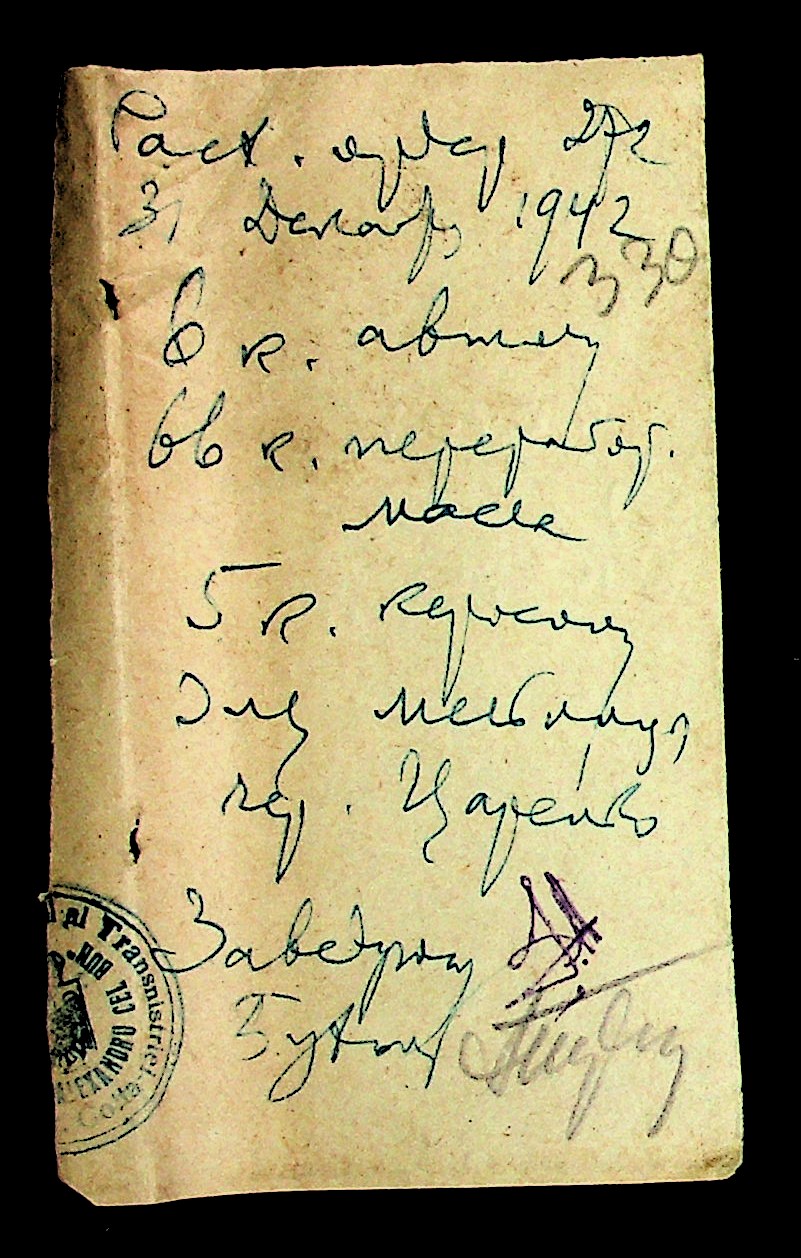 Раст. ордер 272
31 Декабр 1942
330
6 к. автолу
66 к. переработ.
масла
5 к. керосину
Для мельницы
чер. Царенко
Заведующ
al Transnistriei
BUN
ALEXANDRU CEL
Golta